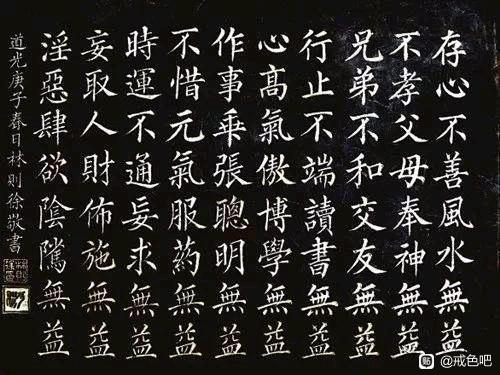 存心不善風水無益
不孝父母奉神無益
兄弟不和交友無益
行止不端讀書無益
心高氣傲博學無益
作事乖張聰明無益
不惜元氣服藥無益
時運不通妄求無益
妄取人財佈施無益
淫惡肆欲陰騭無益
道光庚子春日林則徐敬書
貼 @戒色吧